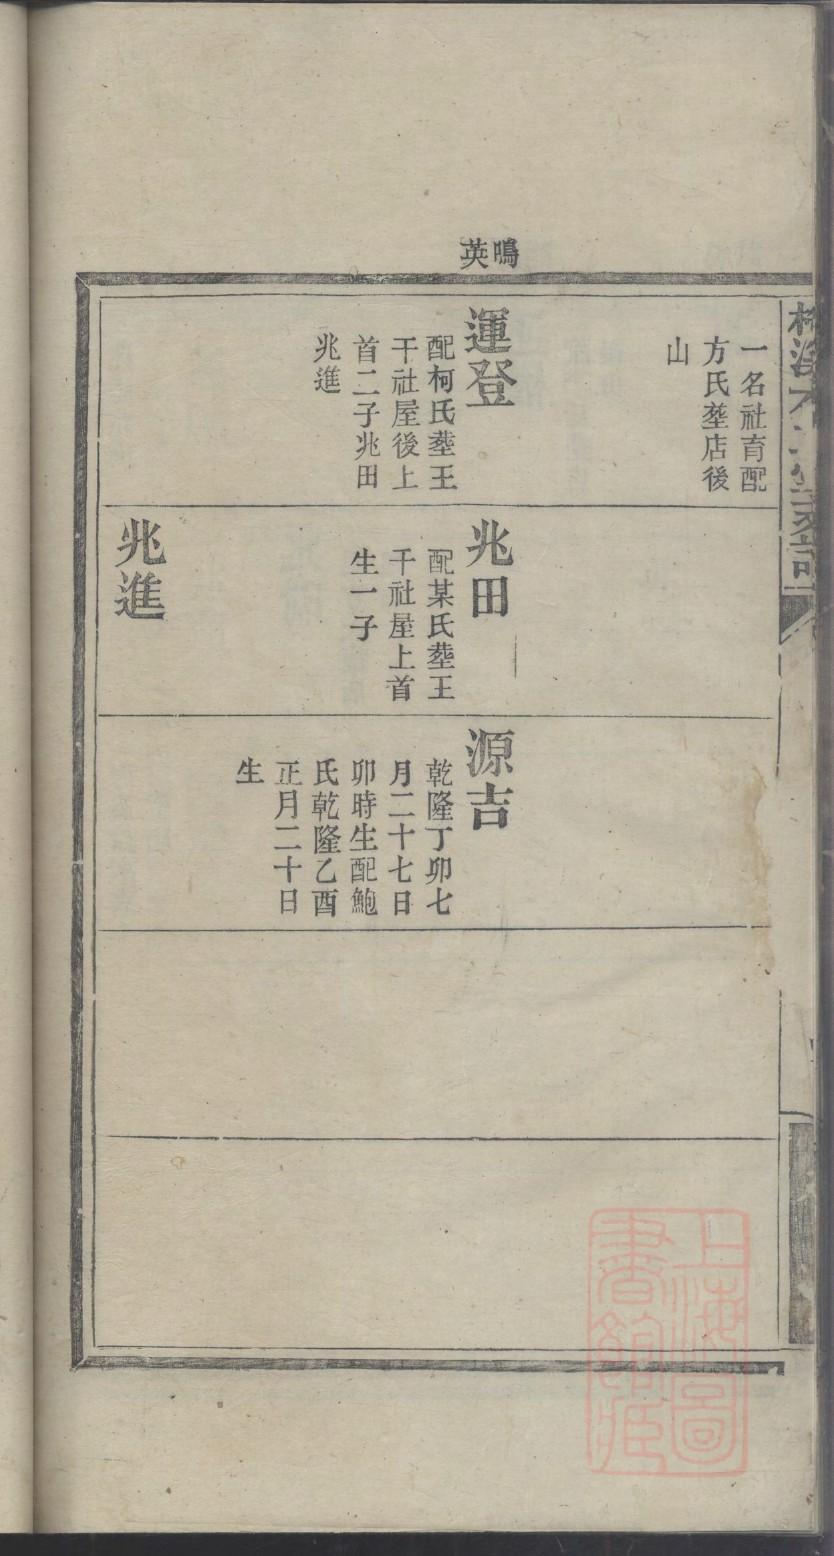 鳴英
一名社育配
方氏塟店後
山
運登
配柯氏塟王
干社屋後上
首二子兆田
兆進
兆田
配某氏塟王
千社屋上首
生一子
兆進
源吉
乾隆丁卯七
月二十七日
卯時生配鮑
氏乾隆乙酉
正月二十日
生
上海圖
書館藏